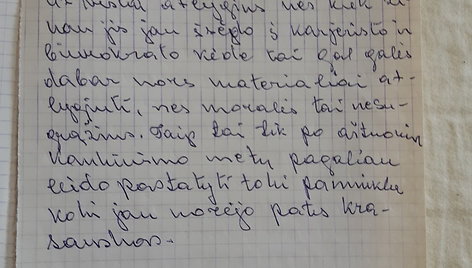 nau jis jau įsėdo į karjeristo ir
biurokrato kėdę tai gal galės
dabar nors materialiai at-
lyginti, nes moralės tai nesu-
grąžins. Taip tai tik po aštuonių
kankinimo metų pagaliau
leido pastatyti tokį paminklą
kokį jau norėjo pats Kra-
sauskas.